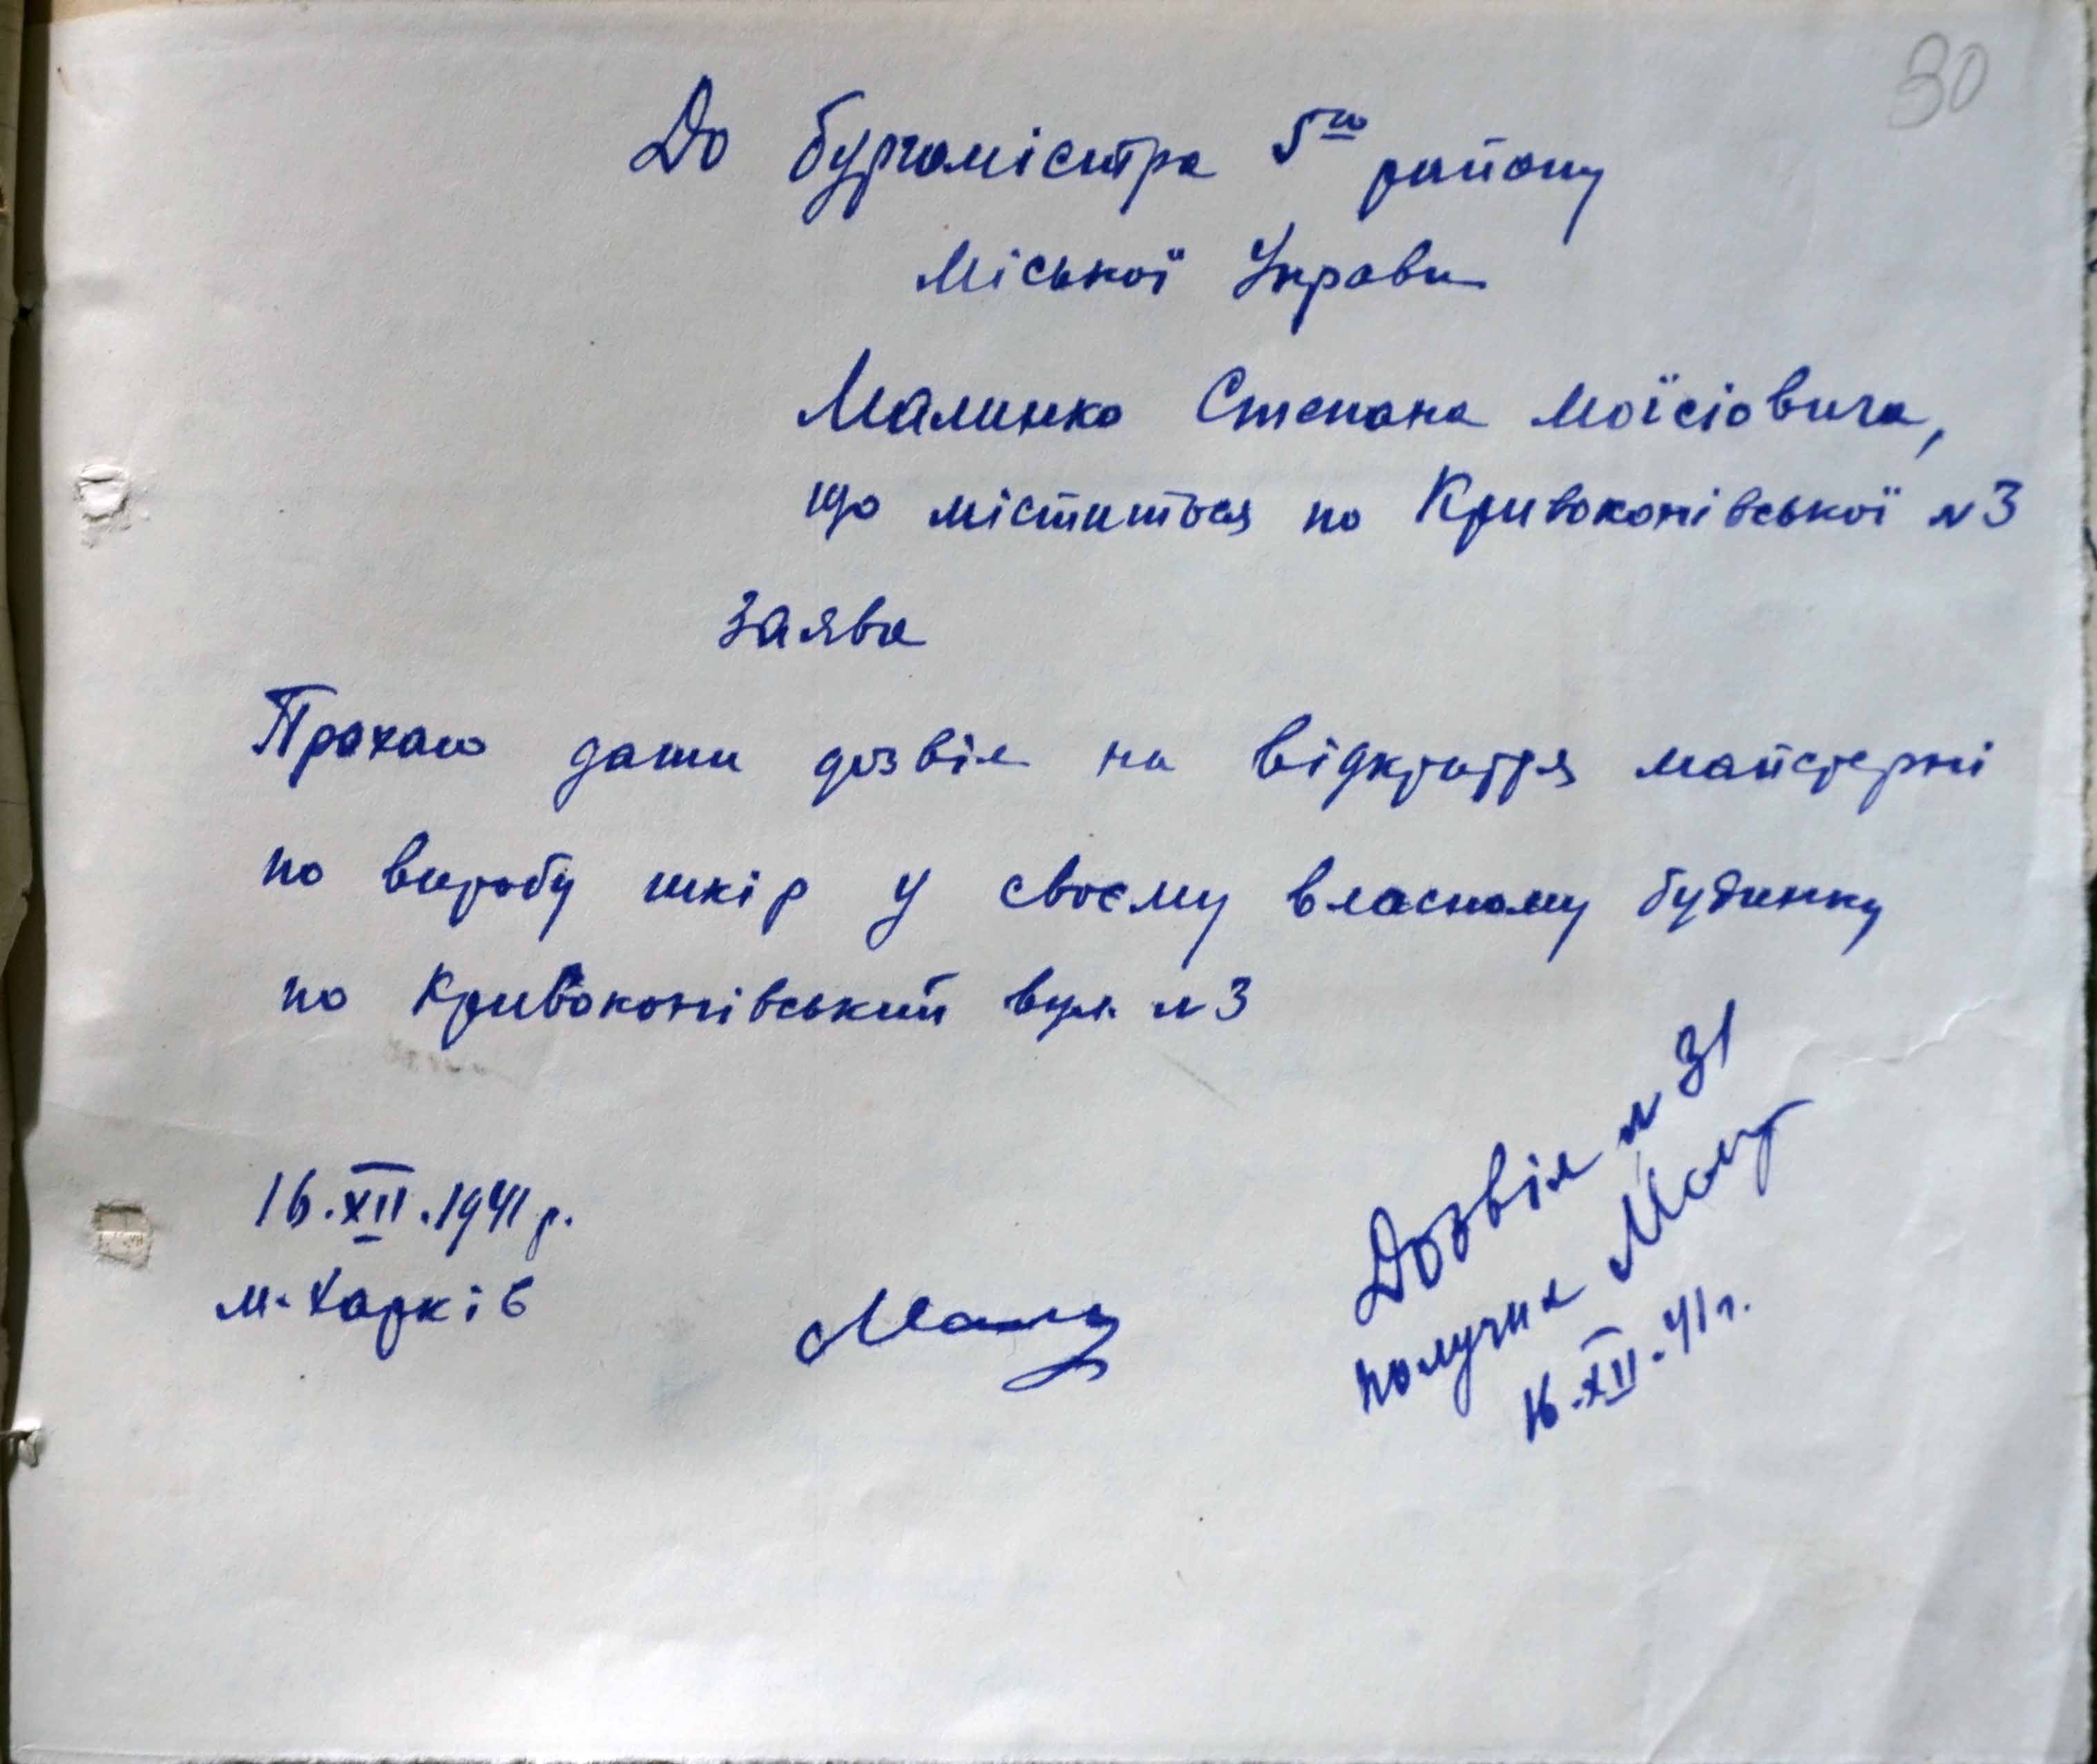 30
До бургомістра 5го району
Міської Управи
Малинко Степана Моїсіовича,
що міститься по Кривоконівської №3
Заява
Прохаю дати дозвіл на відкриття майстерні
по виробу шкір у своєму власному будинку
по Кривоконівський вул. №3
16.XII.1941 р.
м. Харків
Дозвіл № 31
получил
16.XII.41 г.